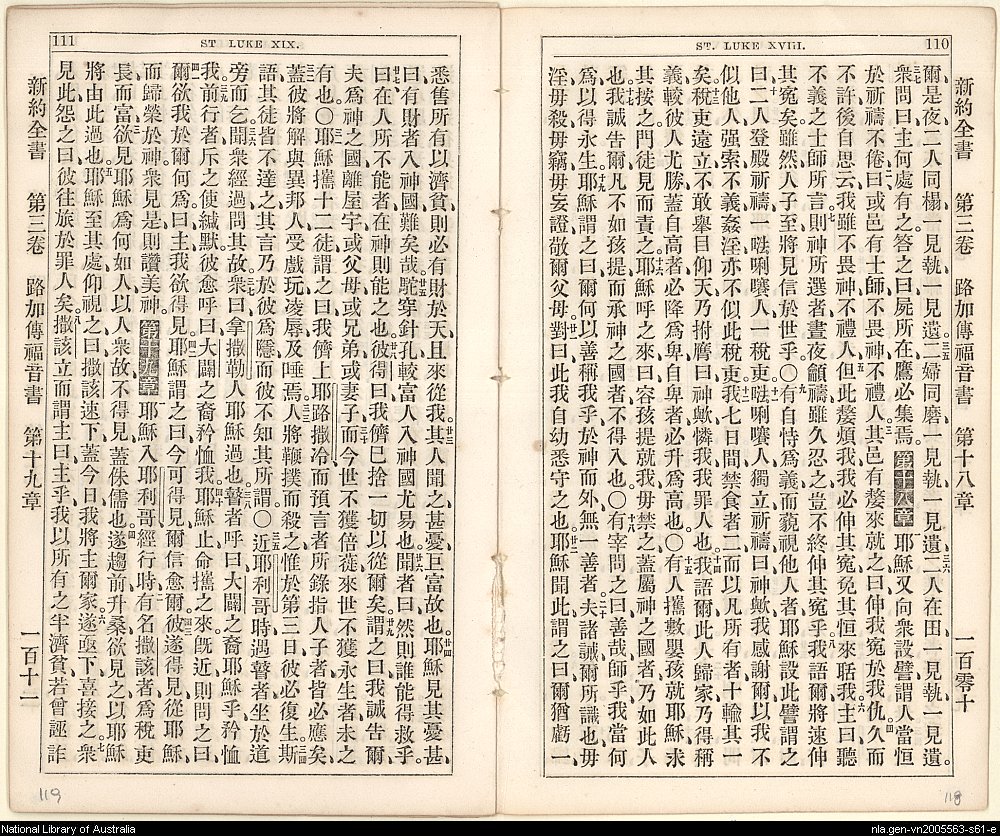 ST. LUKE XVIII.
110
新約全書 第三卷 路加傳福音書 第十八章 一百零十
爾是夜二人同榻一見執一見遺二婦同磨一見執一見遺二人在田一見執一見遺
衆問曰主何處有之答之曰屍所在鷹必集焉 第十八章 耶穌又向衆設譬謂人當恒
於祈禱不倦曰或邑有士師不畏神不禮人其邑有嫠來就之曰伸我寃於我仇久而
不許後自思云我雖不畏神不禮人但此嫠煩我我必伸其寃免其恒來聒我主曰聽
不義之士師所言則神所選者晝夜籲禱雖久忍之豈不終伸其寃乎我語爾將速伸
其寃矣雖然人子至將見信於世乎〇有自恃爲義而藐視他人者耶穌設此譬謂之
曰二人登殿祈禱一㕸唎㘓人一稅吏㕸唎㘓人獨立祈禱曰神歟我感謝爾以我不
似他人强索不義姦淫亦不似此稅吏我七日間禁食者二而以凡所有者十輸其一
矣稅吏遠立不敢舉目仰天乃拊膺曰神歟憐我我罪人也我語爾此人歸家乃得稱
義較彼人尤勝蓋自高者必降爲卑自卑者必升爲高也〇有人攜數嬰孩就耶穌求
其按之門徒見而責之耶穌呼之來曰容孩提就我毋禁之蓋屬神之國者乃如此人
也我誠告爾凡不如孩提而承神之國者不得入也〇有宰問之曰善哉師乎我當何
爲以得永生耶穌謂之曰爾何以善稱我乎於神而外無一善者夫諸誡爾所識也毋
淫毋殺毋竊毋妄證敬爾父母對曰此我自幼悉守之也耶穌聞此謂之曰爾猶虧一
111
ST LUKE XIX.
悉售所有以濟貧則必有財於天且來從我其人聞之甚憂巨富故也耶穌見其憂甚
曰有財者入神國難矣哉駝穿針孔較富人入神國尤易也聞者曰然則誰能得救乎
曰在人所不能者在神則能之也彼得曰我儕已捨一切以從爾矣謂之曰我誠告爾
夫爲神之國離屋宇或父母或兄弟或妻子而今世不獲倍蓰來世不獲永生者未之
有也〇耶穌攜十二徒謂之曰我儕上耶路撒冷而預言者所錄指人子者皆必應矣
蓋彼將解與異邦人受戲玩凌辱及唾焉人將鞭撲而殺之惟於第三日彼必復生斯
語其徒皆不達之其言乃於彼爲隱而彼不知其所謂〇近耶利哥時遇瞽者坐於道
旁而乞聞衆經過問其故衆曰拿撒勒人耶穌過也瞽者呼曰大闢之裔耶穌乎矜恤
我前行者斥之使緘默彼愈呼曰大闢之裔矜恤我耶穌止命攜之來旣近則問之曰
爾欲我於爾何爲曰主我欲得見耶穌謂之曰今可得見爾信愈爾彼遂得見從耶穌
而歸榮於神衆見是則讚美神 第十九章 耶穌入耶利哥經行時有名撒該者爲稅吏
長而富欲見耶穌爲何如人以人衆故不得見蓋侏儒也遂趨前升桑欲見之以耶穌
將由此過也耶穌至其處仰視之曰撒該速下蓋今日我將主爾家遂亟下喜接之衆
見此怨之曰彼往旅於罪人矣撒該立而謂主曰主乎我以所有之半濟貧若曾誣詐
新約全書 第三卷 路加傳福音書 第十九章 一百十一
119
118
National Library of Australia
nla.gen-vn2005563-s61-e